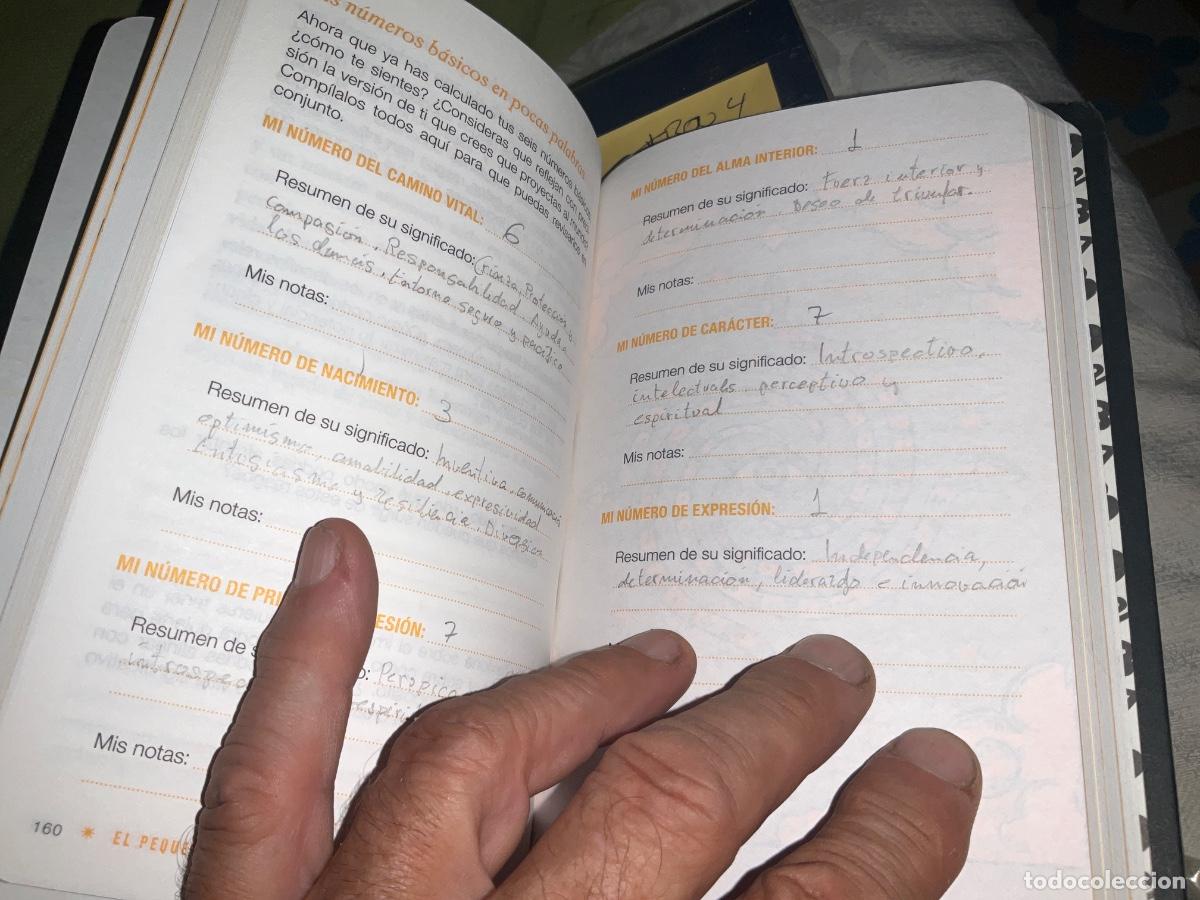 s números básicos en pocas palabras
Ahora que ya has calculado tus seis números básicos,
¿cómo te sientes? ¿Consideras que reflejan con preci-
sión la versión de ti que crees que proyectas al mundo?
Compílalos todos aquí para que puedas revisarlos en
conjunto.
MI NÚMERO DEL CAMINO VITAL: 6
Resumen de su significado: Crianza, Protección y
compasión. Responsabilidad. Ayuda a
los demás. Entorno seguro y pacífico
Mis notas:
MI NÚMERO DE NACIMIENTO: 3
Resumen de su significado: Inventiva, comunicación
optimismo, amabilidad, expresividad
Entusiasmo y resiliencia. Diversión
Mis notas:
MI NÚMERO DE PRI ESIÓN: 7
Resumen de s o:
introspec espirit
Mis notas:
160 ✷ EL PEQUE
MI NÚMERO DEL ALMA INTERIOR: 1
Resumen de su significado: Fuerz interior y
determinación. Deseo de triunfar.
Mis notas:
MI NÚMERO DE CARÁCTER: 7
Resumen de su significado: Introspectivo,
intelectuals perceptivo y
espiritual
Mis notas:
MI NÚMERO DE EXPRESIÓN: 1
Resumen de su significado: Independencia,
determinación, liderazgo e innovación
4
todocoleccion